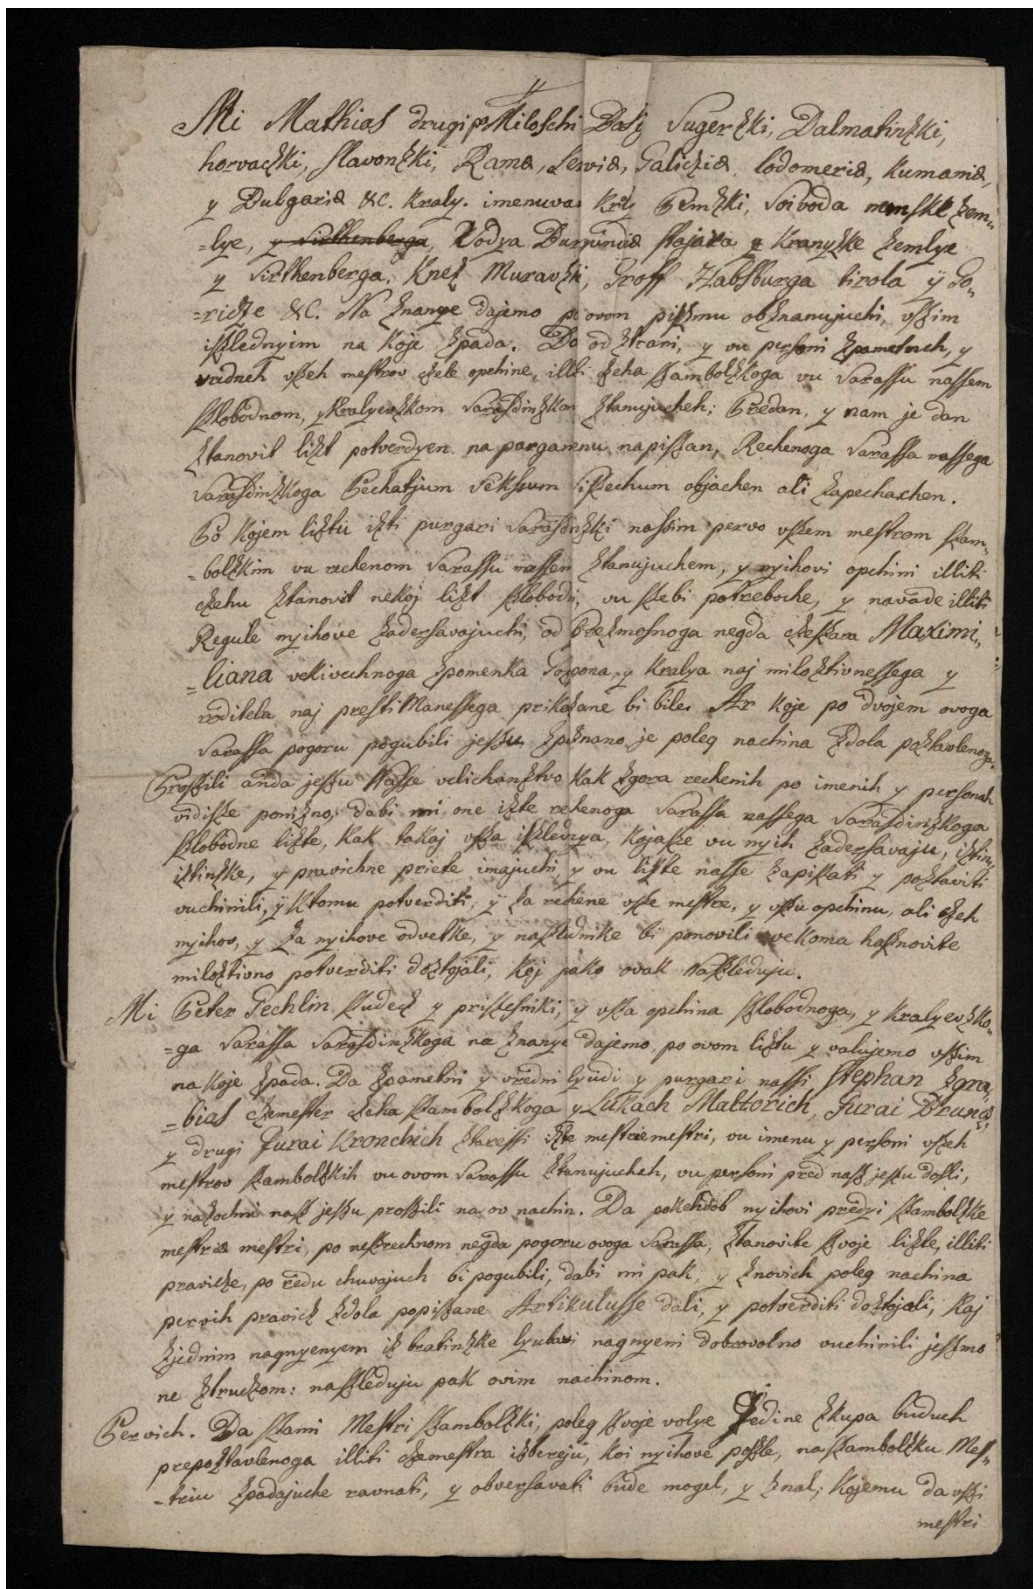 Mi Mathias drugi po Miloschi Dosy Vugerzki, Dalmatinzki,
horvaczki, slavonzki, Rama, Servia, Galiczia, lodomeria, Kumania,
y Bulgaria &C. Kraly. imenuvan Kraly Pemzki, Voivoda nemske zem„
„lye, y Virthenberga, Vodya Burgundia stajara y Kranyzke zemlye
y Virthenberga, Knez Muravzki, Groff Habsburga tirola ÿ Go„
„ricze &C. Na znanye dajemo po ovom piszmu obznanujuchi, vszim
iszlednyim na koje zpada. Da od ztrani, y vu personi zpametneh, y
vrednеh vszeh mestrov czele opchine, illi czeha szambolzkoga vu Varassu nassem
szlobodnom, y Kralyevzkom Varasdinzkom ztanujucheh; Predan, y nam je dan
ztanovit lizt potverdyen na pargamenu napiszan, Rechenoga Varassa nassega
Varasdinzkoga Pechatjum Vekssum Viszechum objachen ali zapechachen.
Po kojem liztu izti purgari Varasdinzki nasbim pervo vszem mestrom szam„
„bolzkim vu rechenom Varassu nassem ztanujuchem, y nyihovi opchini illiti
czehu ztanovit nekoj lizt szlobodni, vu szebi potreboche, y navade illiti
Regule nyihove zadersavajuchi, od Prezmosnoga negda czeszara Maximi„
„liana vekivechnoga zpomenka Gozpona, y Kralya naj miloztivnessega y
roditela naj prestimanessega prikazane bi bile. Ar koje po dvojem ovoga
Varassa pogoru pogubili jeszu zpoznano je poleg nachina zdola poztavlenoga.
Proszili anda jeszu Nasse velichanztvo kak zgora rechenih po imenih y personah
vidisze ponizno, dabi mi one izte rechenoga Varassa nassega Varasdinzkoga
szlobodne lizte, kak takaj vsza iszlednya, kojasze vu nyih zadersavaju, iztin„
iztinske, y pravichne priete imajuchi, y vu lizte nasse zapiszati y poztaviti
vuchinili, ÿ ktomu potverditi, ÿ za rechene vsze mestre, y vszu opchinu, ali czeh
nyihov, y za nyihove odvetke, y naszlednike bi ponovili vekoma hasznovite
miloztivno potverditi doztojali, koj jako ovak Naszleduju.
Mi Peter Pechlin szudecz y priszesniki, y vsza opchina szlobodnoga, y Kralyevzko„
„ga Varassa Varasdinzkoga na znanye dajemo po ovom liztu y valujemo vszim
na koje zpada. Da zpametni y vredni lyudi y purgari nassi Stephan Zgra„
„bias czemester czeha szambolzkoga y Lukach Maltorich, Jurai Drunas,
y drugi Jurai Kronchich ztaressi izte mestrie mestri, vu imenu y personi vszeh
mestrov szambolzkih vu ovom Varassu ztanujucheh, vu personi pred nasz jeszu dosli,
y nazochni nasz jeszu proszili na ov nachin. Da pokehdob nyihovi predyi szambolzke
mestrie mestri, po neszrechnom negda pogoru ovoga Varassa, ztanovite szvoje lizte, illiti
pravicze, po redu chuvajuch bi pogubili, dabi mi pak, y znovich poleg nachina
pervih pravicz zdola popiszane Artikulusse dali, y potverditi doztojali, Kaj
zjednim nagnyenyem iz bratinzke lyubavi nagnyeni dobrovolno vuchinili jeszmo
ne ztruczom: naszleduju pak ovim nachinom.
Pervich. Da szami Mestri szambolzki, poleg szvoje volye Jedine zkupa buduch
prepoztavlenoga illiti czemestra izbereju, koi nyihove poszle, na szambolzku Mes„
„triu zpadajuche ravnati, y obversavati bude mogel, y znal, kojemu da vszi
mestri